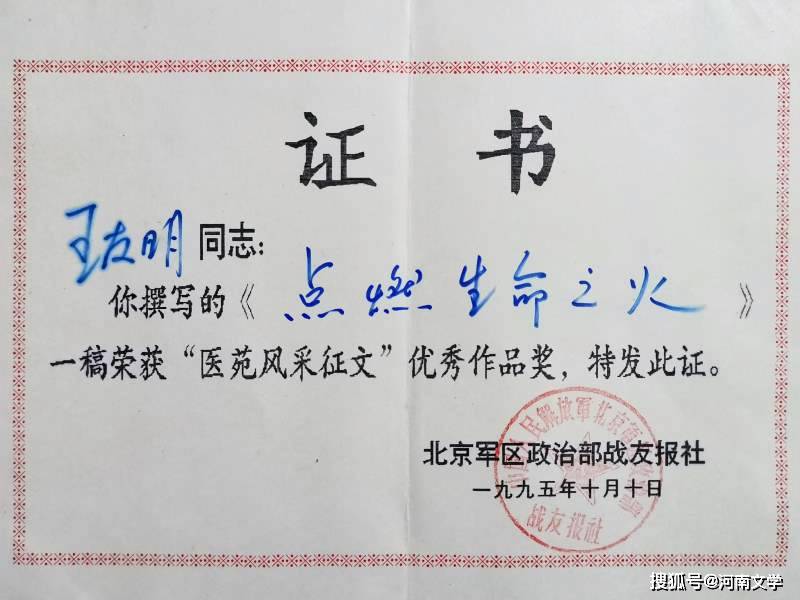 证书
王友明同志：
你撰写的《点燃生命之火》
一稿荣获“医苑风采征文”优秀作品奖，特发此证。
北京军区政治部战友报社
一九九五年十月十日
战友报社
搜狐号@河南文学